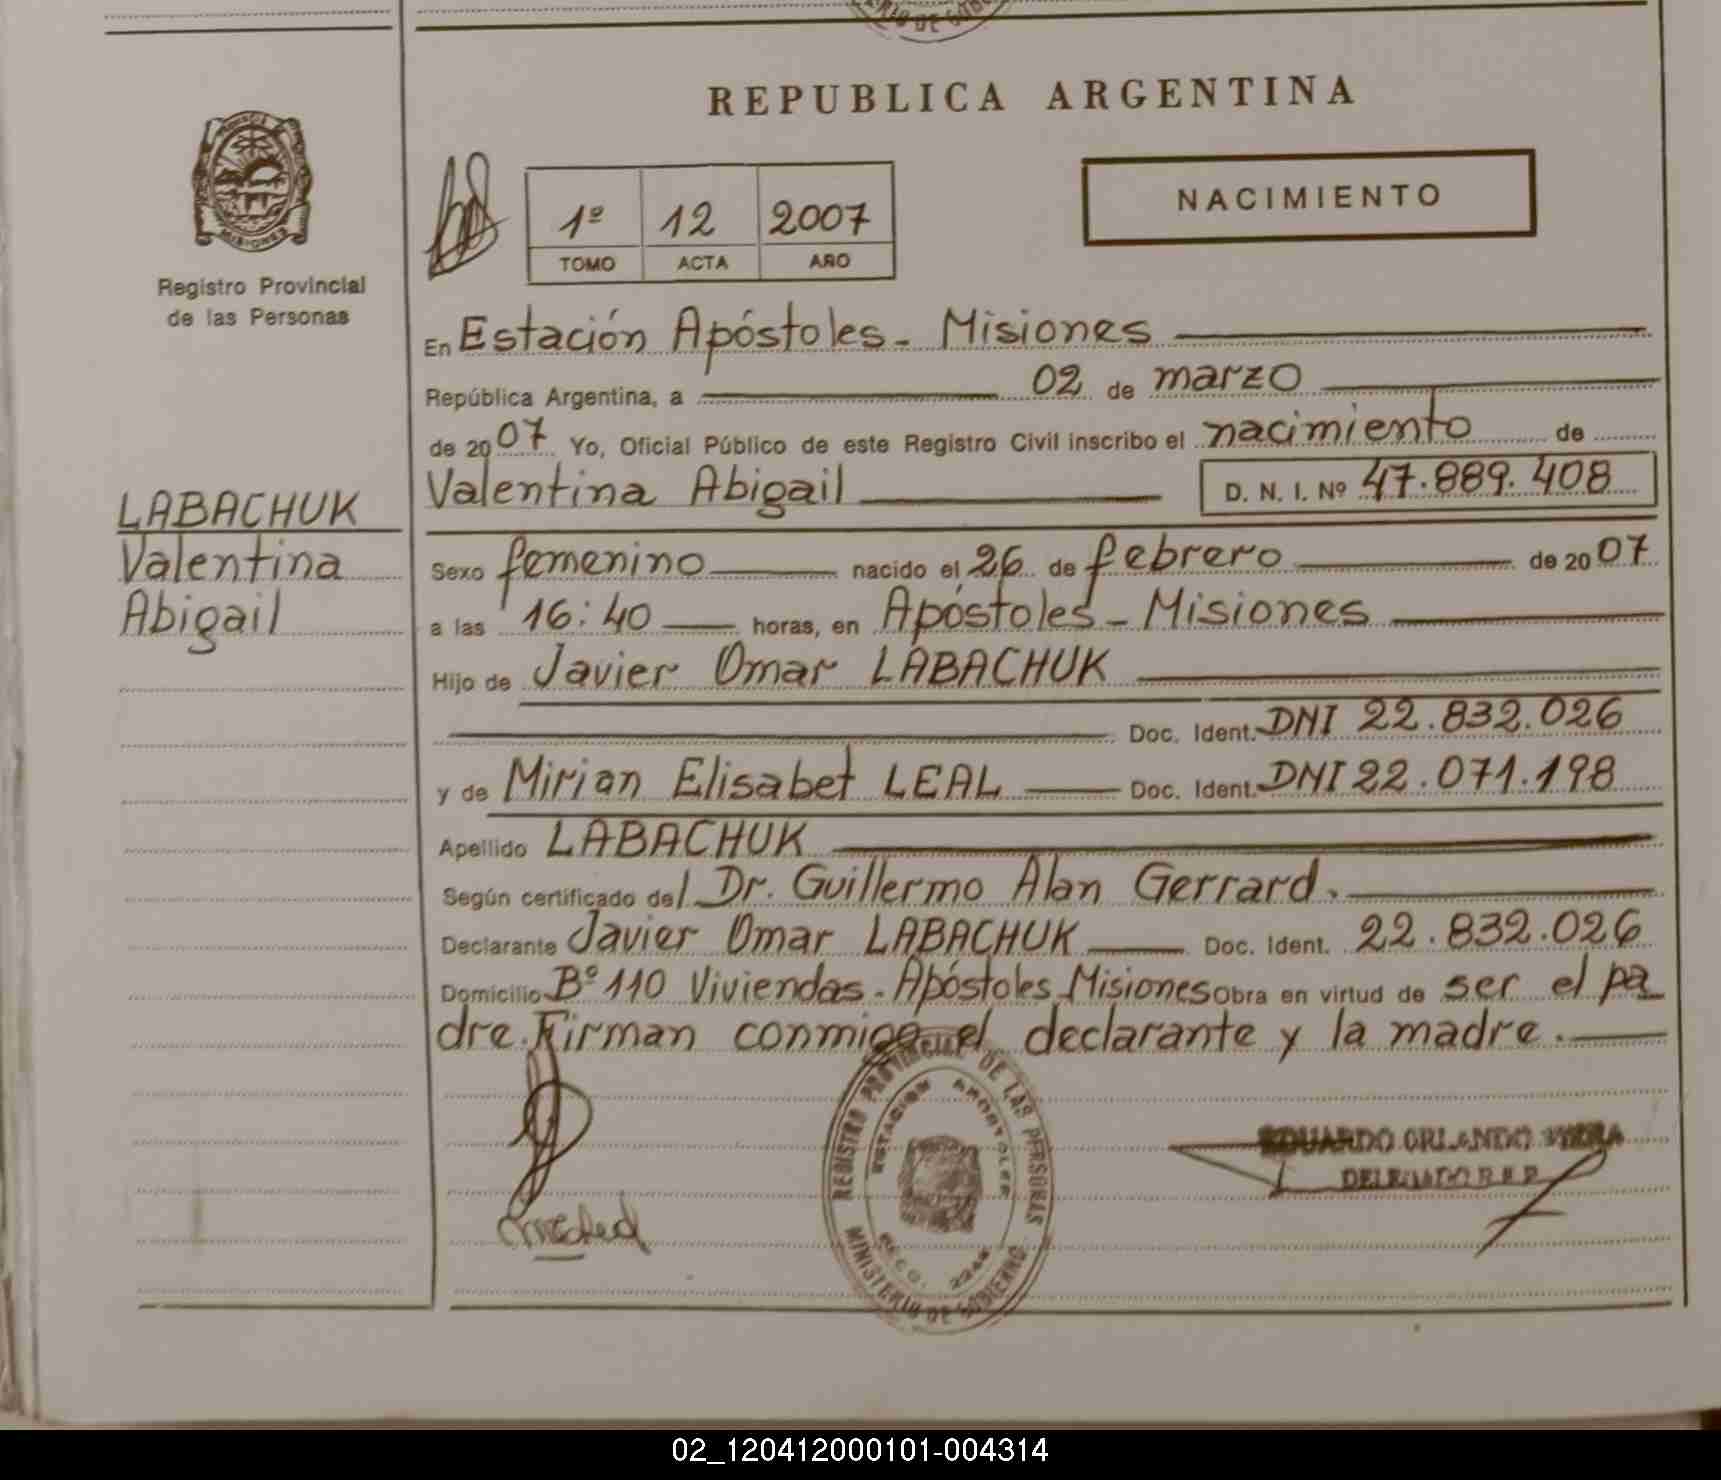 REPUBLICA ARGENTINA
NACIMIENTO
1º 12 2007
TOMO ACTA AÑO
MISIONES
Registro Provincial
de las Personas
LABACHUK
Valentina
Abigail
En Estación Apóstoles - Misiones
República Argentina, a 02 de marzo
de 2007 Yo, Oficial Público de este Registro Civil inscribo el nacimiento de
Valentina Abigail D. N. I. Nº 47.889.408
Sexo femenino nacido el 26 de febrero de 2007
a las 16:40 horas, en Apóstoles - Misiones
Hijo de Javier Omar LABACHUK
Doc. Ident. DNI 22.832.026
y de Mirian Elisabet LEAL Doc. Ident. DNI 22.071.198
Apellido LABACHUK
Según certificado del Dr. Guillermo Alan Gerrard.
Declarante Javier Omar LABACHUK Doc. Ident. 22.832.026
Domicilio Bº 110 Viviendas - Apóstoles Misiones Obra en virtud de ser el pa
dre. Firman conmigo el declarante y la madre.
REGISTRO PROVINCIAL DE LAS PERSONAS
ESTACION APOSTOLES
MINISTERIO DE GOBIERNO
EDUARDO ORLANDO
DELEGADO R.P.P.
02_120412000101-004314